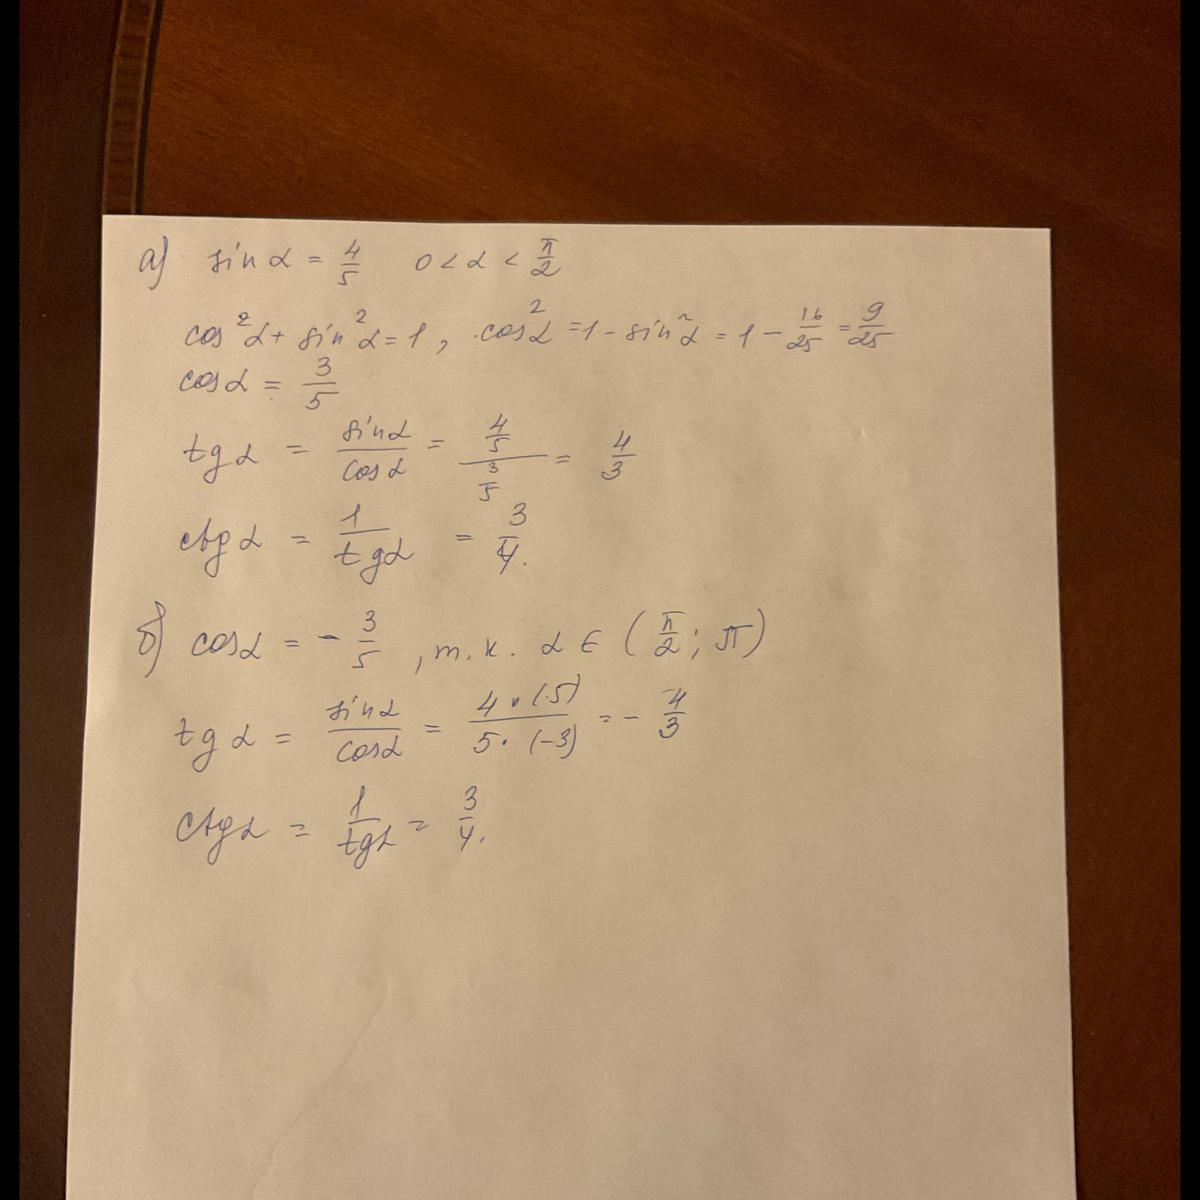 а) sin α = 4/5 0 < α < π/2
cos²α + sin²α = 1, cos²α = 1 - sin²α = 1 - 16/25 = 9/25
cos α = 3/5
tg α = sin α / cos α = (4/5) / (3/5) = 4/3
ctg α = 1 / tg α = 3/4.
б) cos α = - 3/5, т.к. α ∈ (π/2; π)
tg α = sin α / cos α = 4 · (5) / 5 · (-3) = - 4/3
ctg α = 1 / tg α = 3/4.